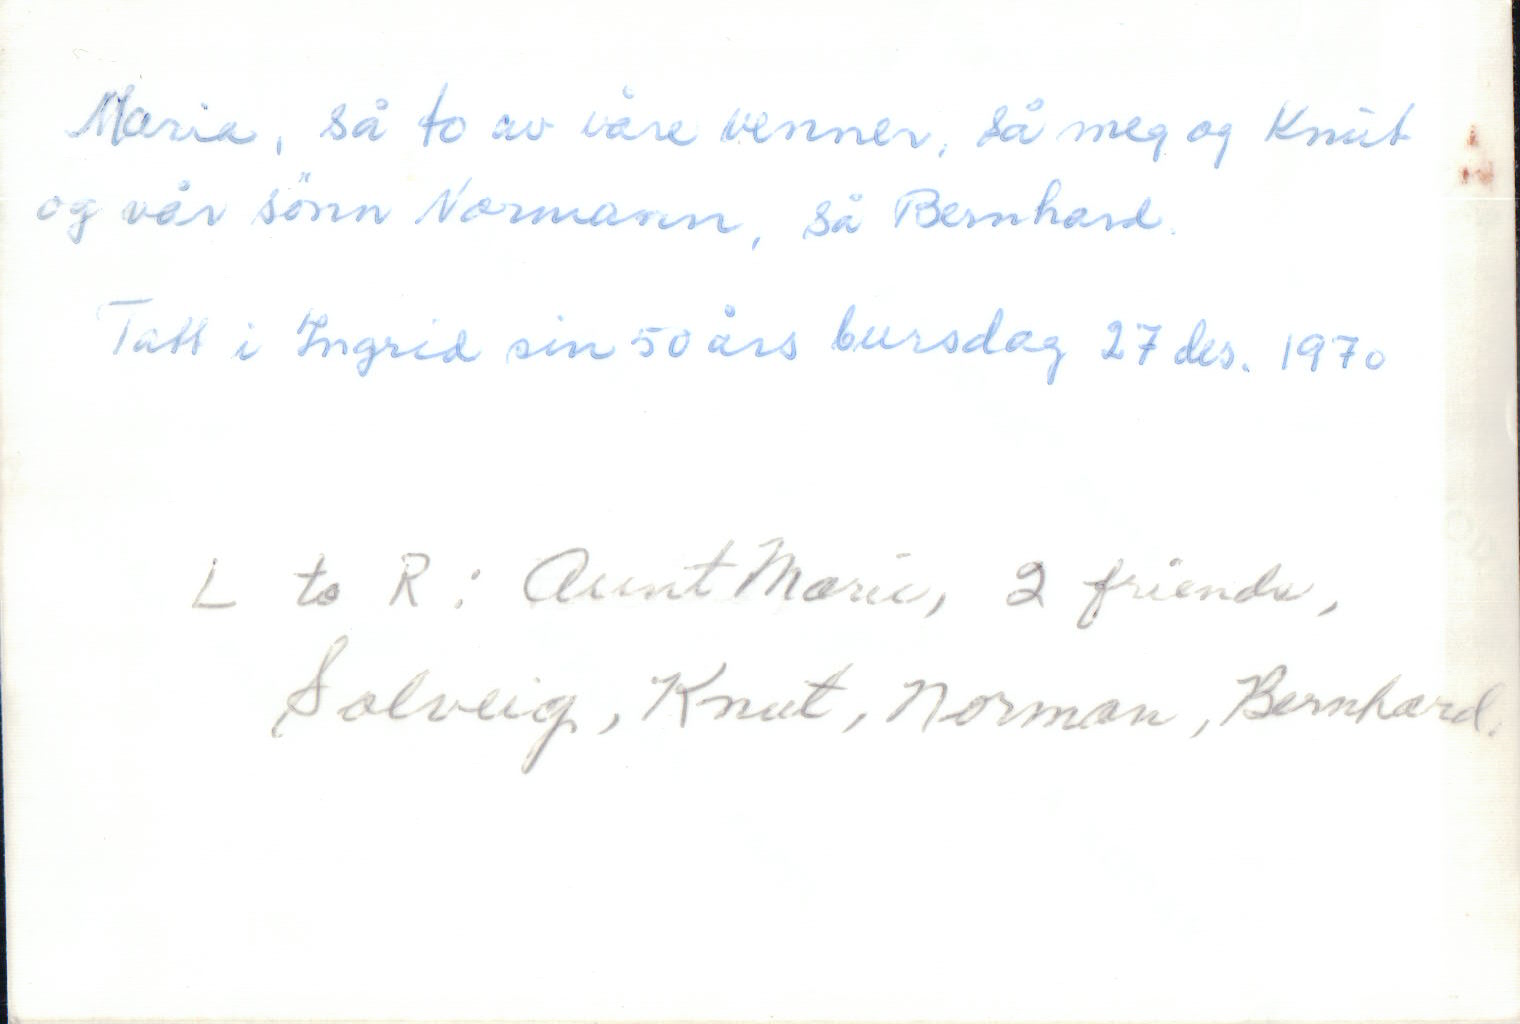 Maria, så to av våre venner, så meg og Knut
og vår sönn Normann, så Bernhard.
Tatt i Ingrid sin 50 års bursdag 27 des. 1970
L to R: Aunt Marie, 2 friends,
Solveig, Knut, Norman, Bernhard.